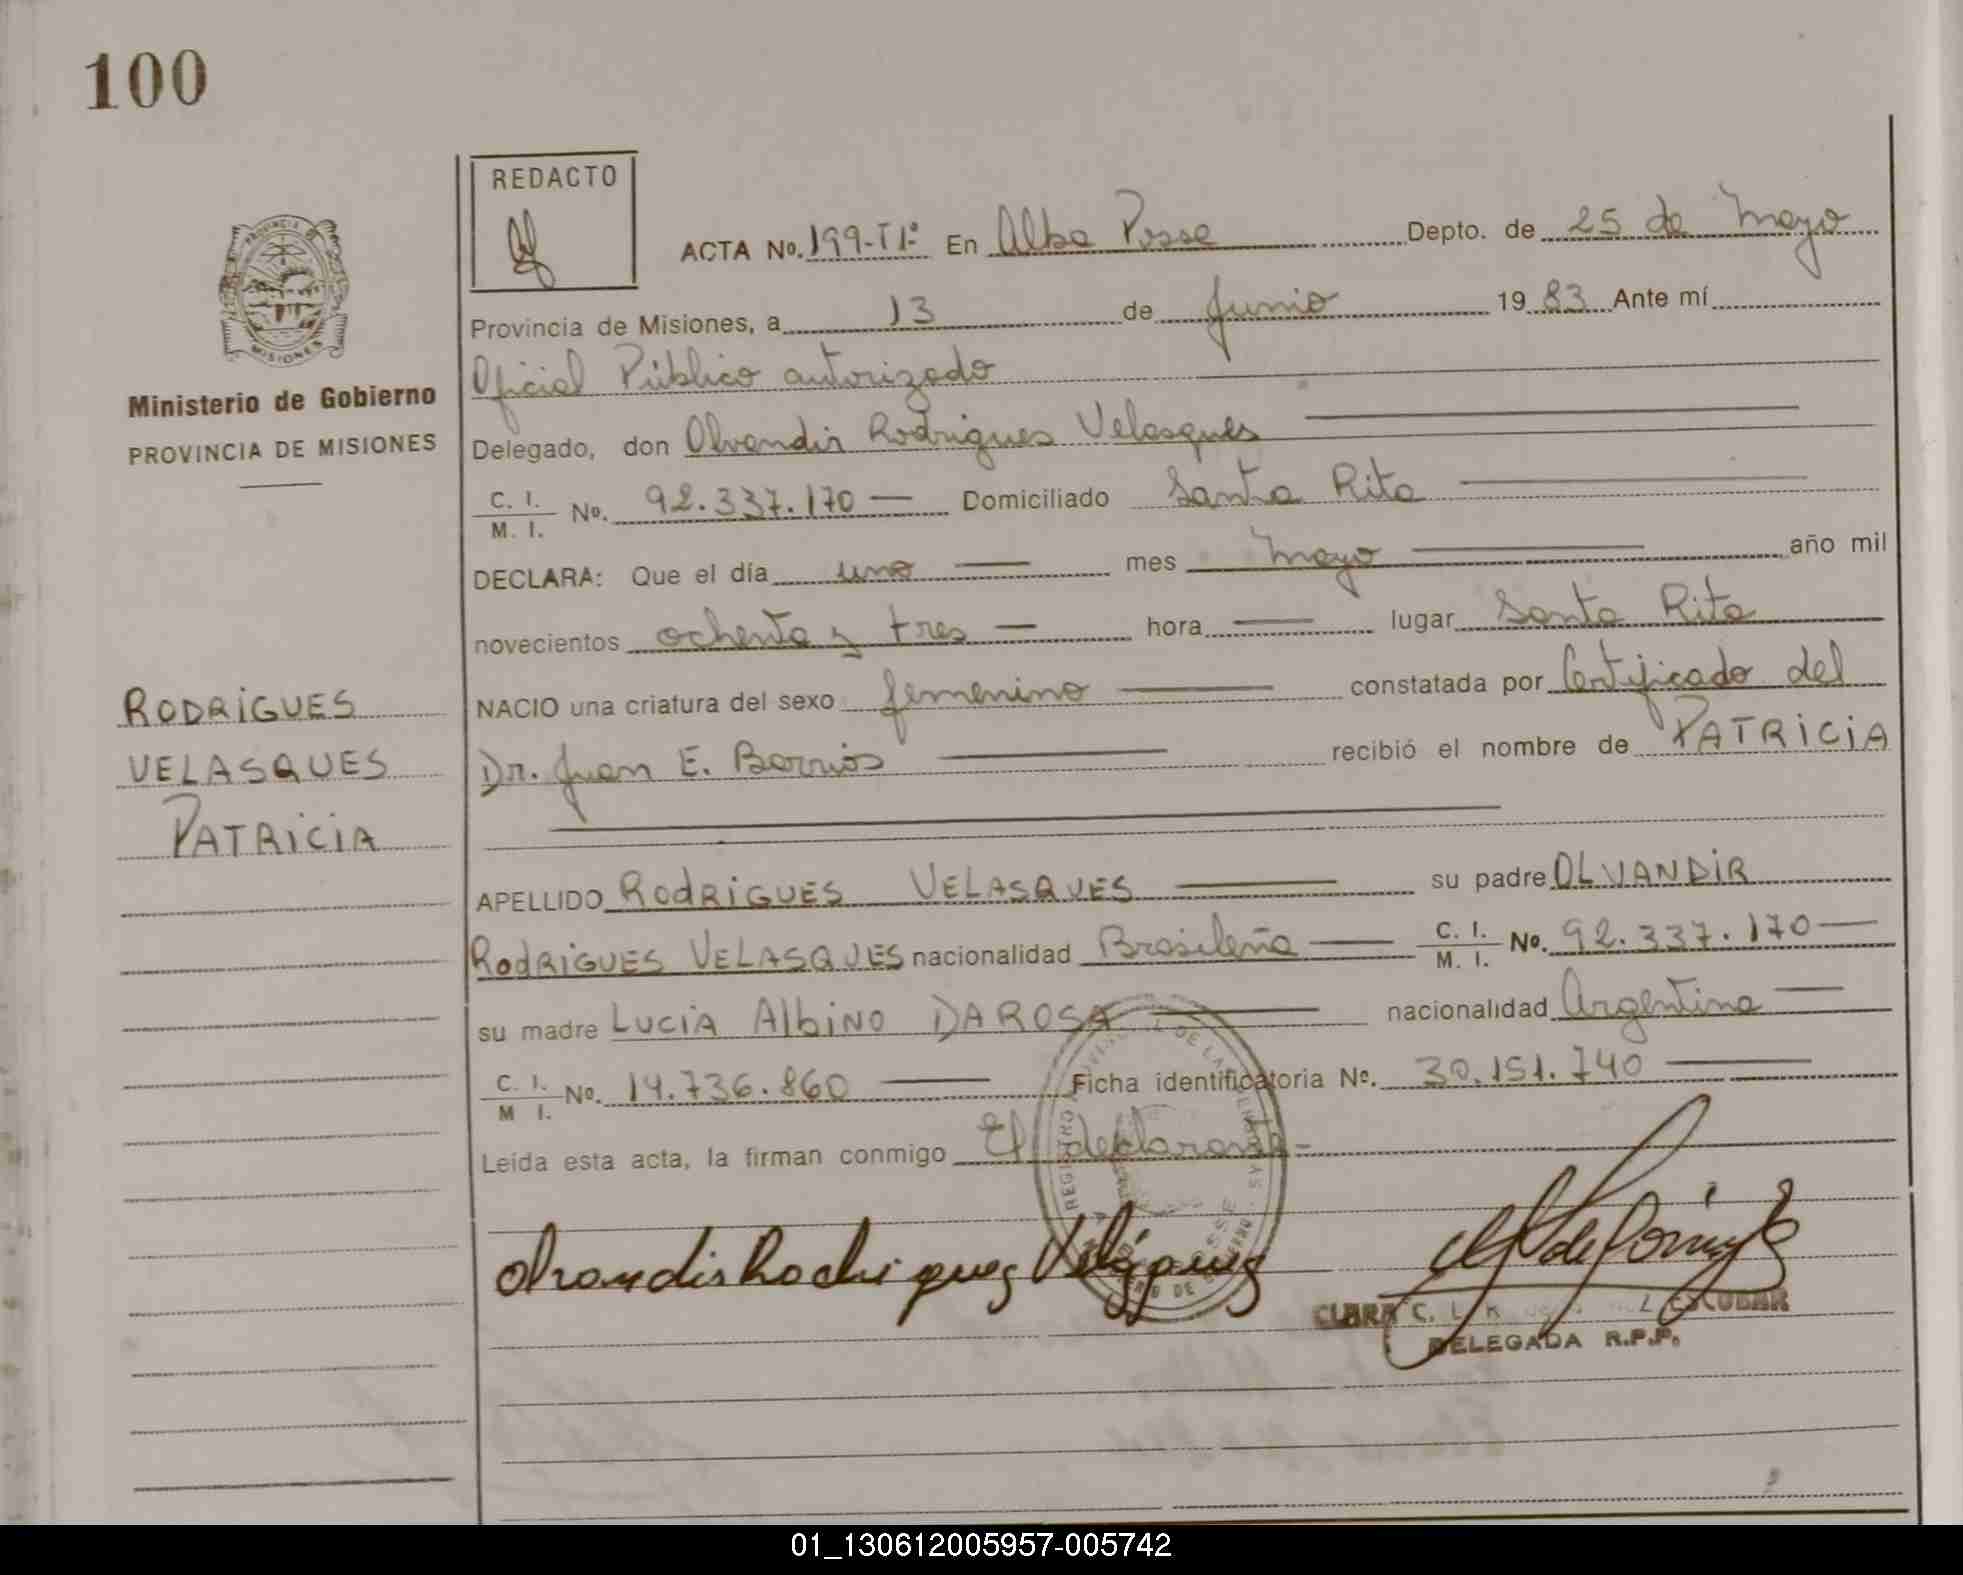 100
REDACTO
ACTA No. 199-T1º En Alba Posse Depto. de 25 de Mayo
Provincia de Misiones, a 13 de Junio 1983 Ante mí
Oficial Público autorizado
Delegado, don Olvandir Rodrigues Velasques
C. I.
M. I. No. 92.337.170 — Domiciliado Santa Rita
DECLARA: Que el día uno mes mayo año mil
novecientos ochenta y tres hora — lugar Santa Rita
NACIO una criatura del sexo femenino constatada por Certificado del
Dr. Juan E. Barrios recibió el nombre de PATRICIA
APELLIDO RODRIGUES VELASQUES su padre OLVANDIR
RODRIGUES VELASQUES nacionalidad Brasileña C. I. M. I. No. 92.337.170
su madre LUCIA ALBINO DAROSA nacionalidad Argentina
C. I. M I. No. 14.736.860 Ficha identificatoria No. 30.151.740
Leída esta acta, la firman conmigo El declarante
CLARA C. ESCUBAR
DELEGADA R.P.P.
PROVINCIA DE
MISIONES
Ministerio de Gobierno
PROVINCIA DE MISIONES
RODRIGUES
VELASQUES
PATRICIA
01_130612005957-005742